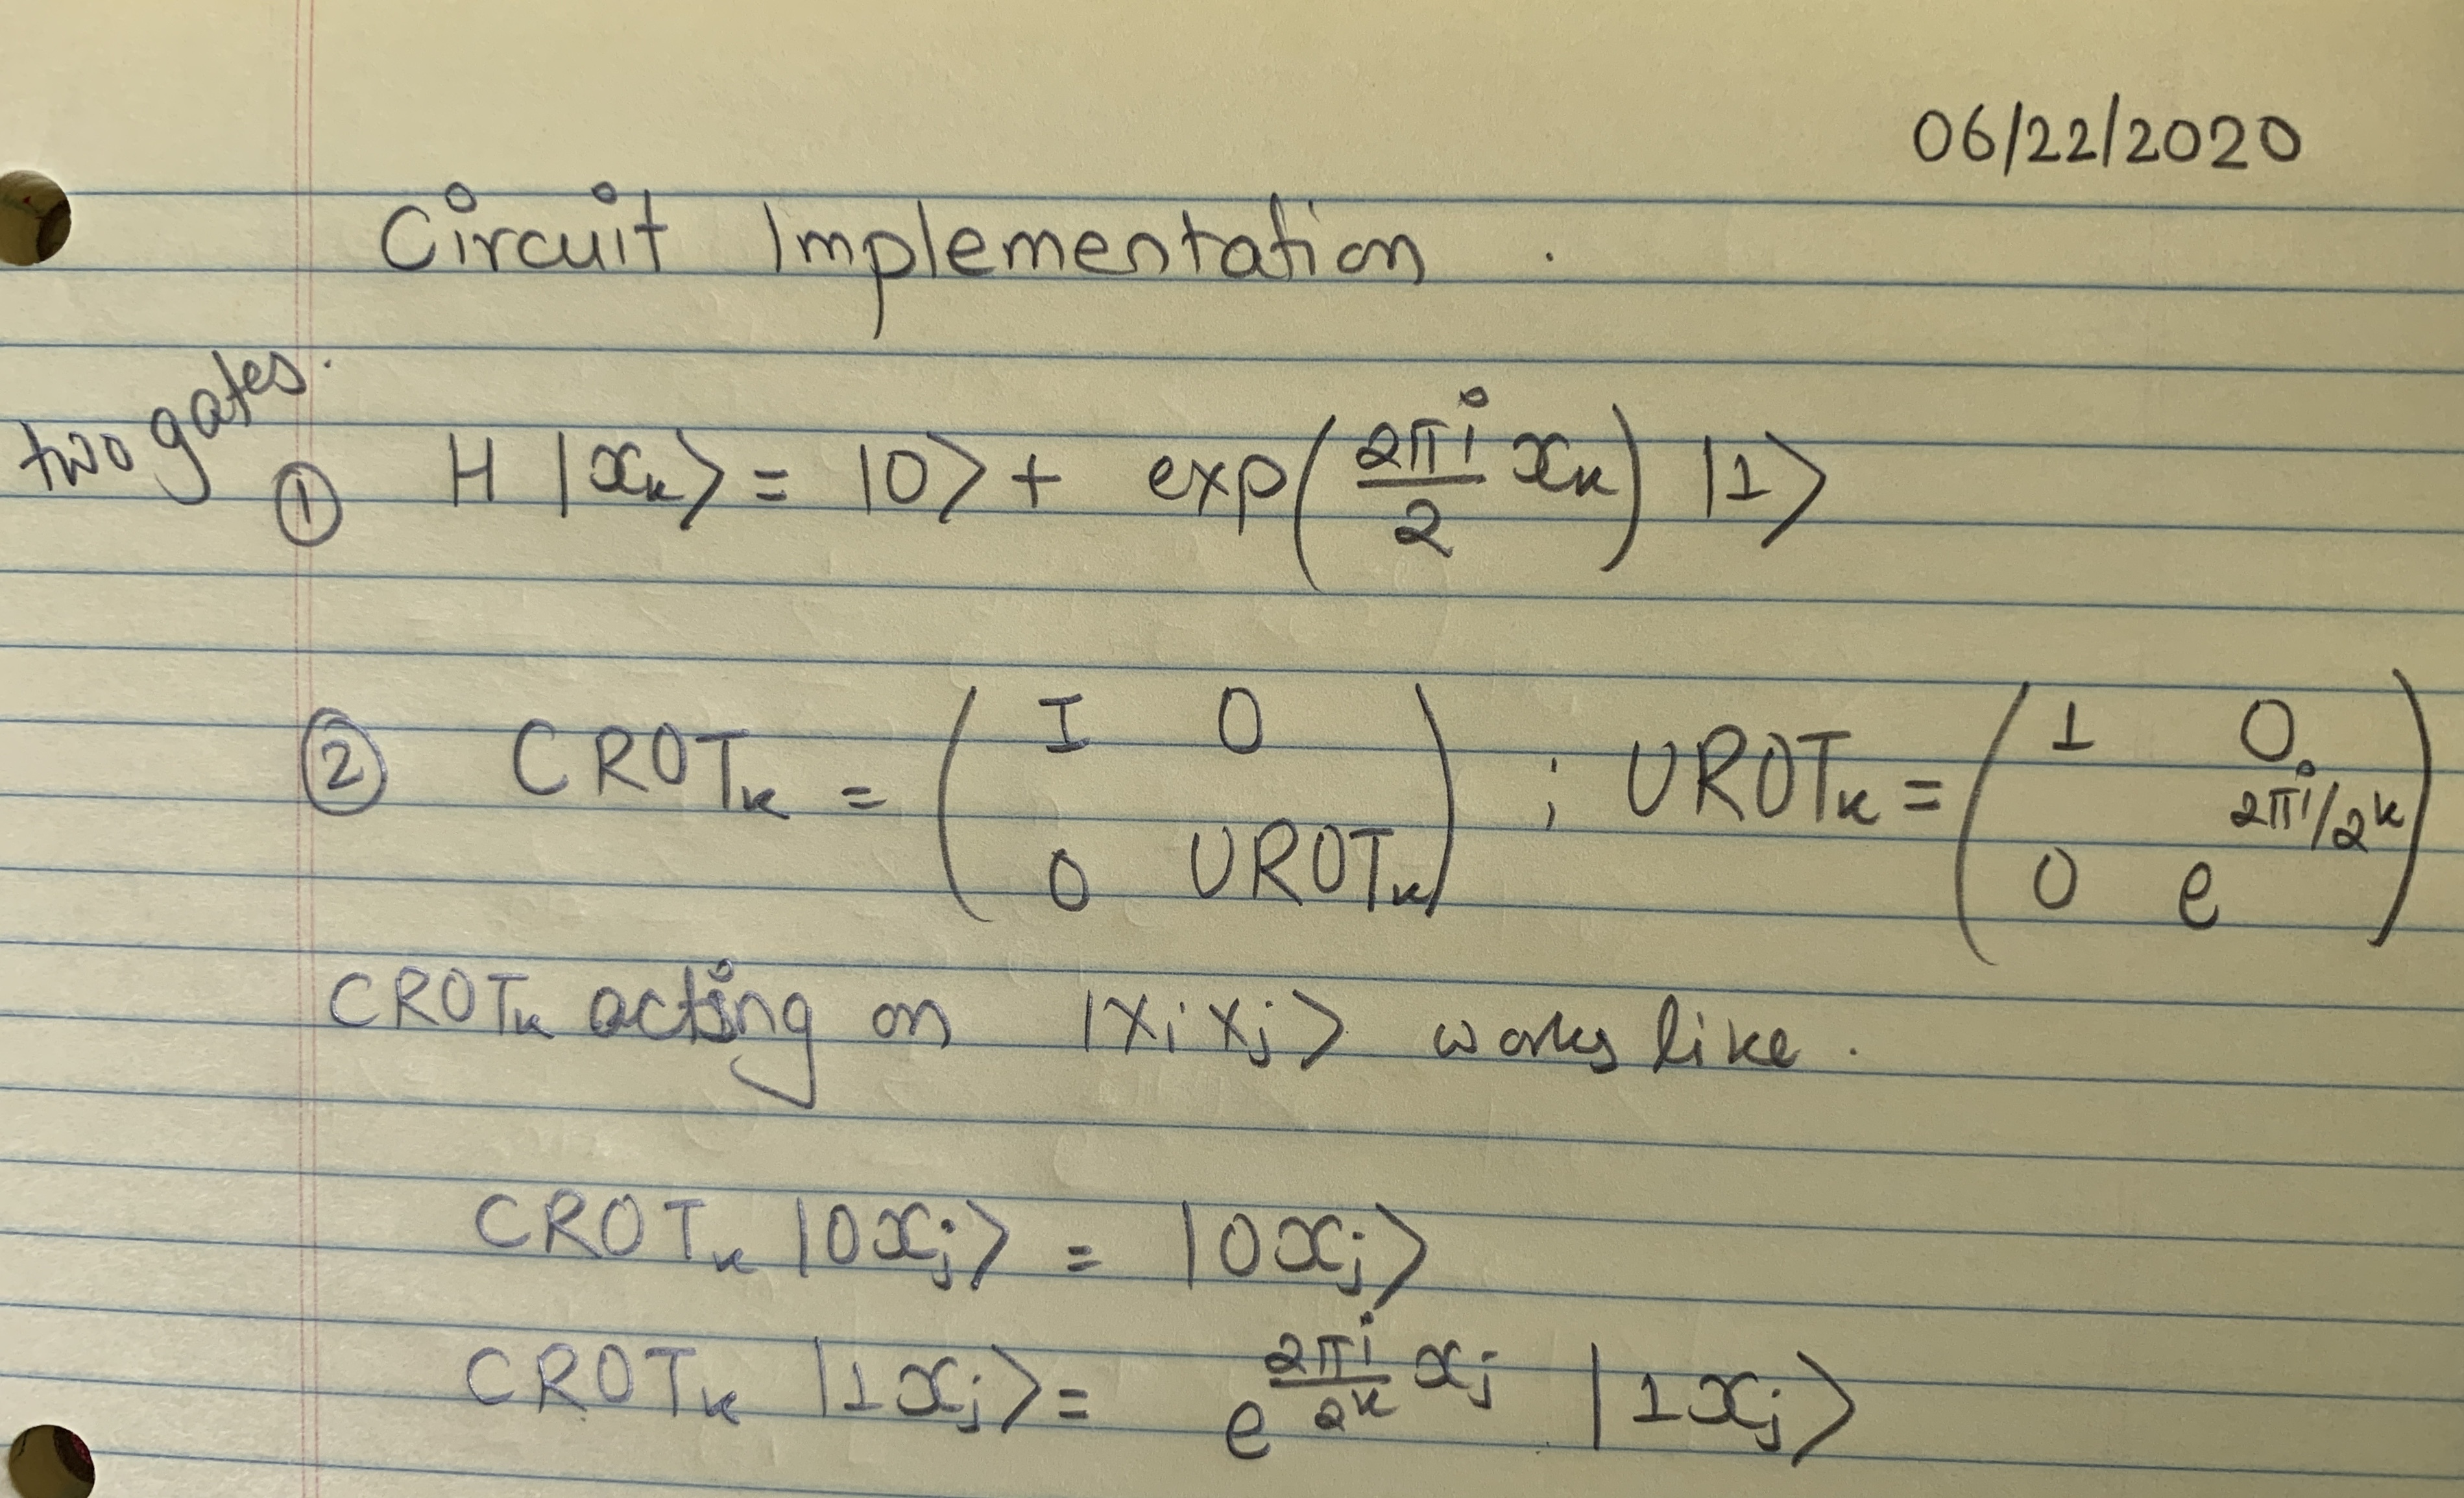 06/22/2020
Circuit Implementation .
two gates.
① H |xₖ⟩ = |0⟩ + exp(2πi/2 xₖ) |1⟩
② CROTₖ = ( I 0 ; UROTₖ = ( 1 0
0 UROTₖ) 0 e^(2πi/2^k) )
CROTₖ acting on |xᵢxⱼ⟩ works like .
CROTₖ |0xⱼ⟩ = |0xⱼ⟩
CROTₖ |1xⱼ⟩ = e^(2πi/2^k xⱼ) |1xⱼ⟩